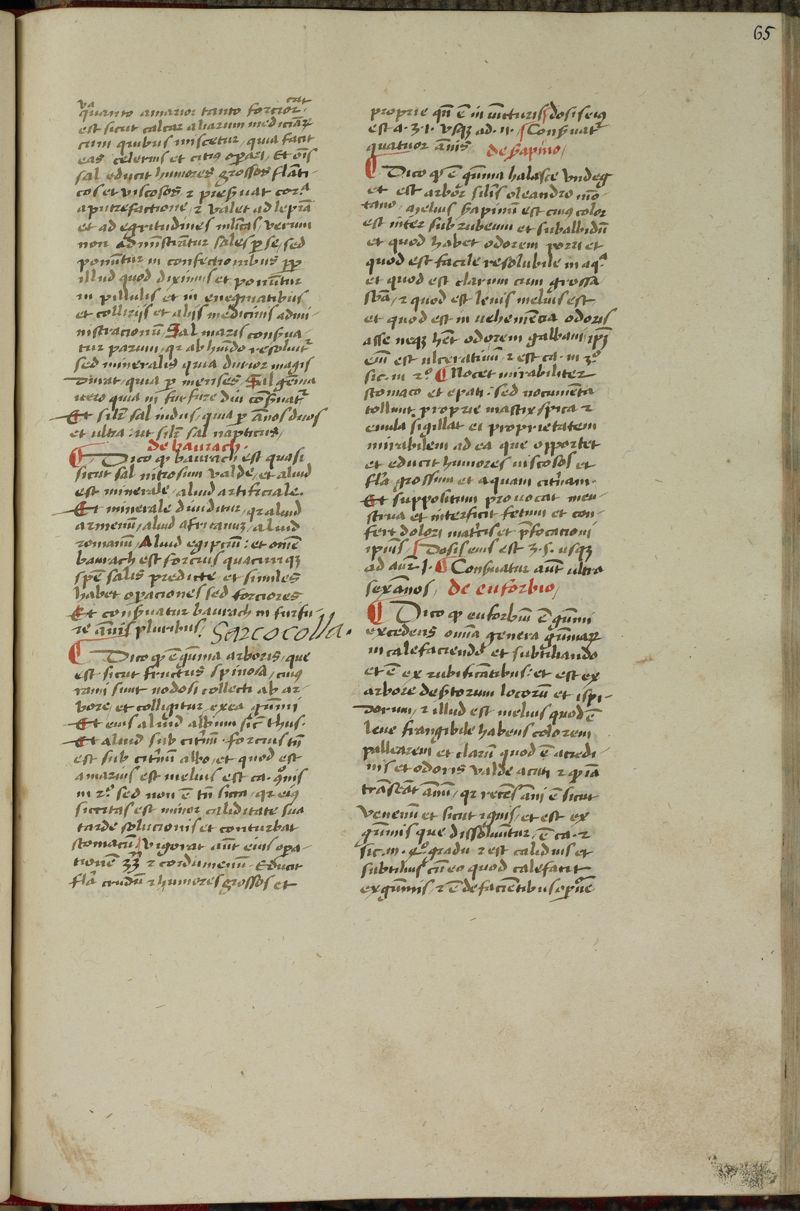 65
quanto amarior tanto forcior
est sicut calcar aliarum mediciaꝝ
cum quibus miscetur, quia facit
eas celerius et citius opari, Et oīs
sal educit humores grossos flāti-
cos et viscosos ⁊ preseruat corꝑa
a putrefactione, ⁊ valet ad leprā
et ad egritudines mltas, verum
non admīstrātur sales ꝑ se, sed
ponūtur in confectionibus ꝓp
illud quod diximus et ponūtur
in pillulis et in enegmatibus
et collirijs et alijs medicinis admi-
nistracionū, Sal maris conserua-
tur parum, qr ab humido resoluitᵉ
sed mineralis quia durior magis
Durat, quia ꝑ menses, Sal gēma
uero quia in furfure diu cōseruatᵉ
Et silr sal indus, quia ꝑ ānos duos
et ultra, ut silr sal napticus,
de baurach.
Dico ꝙ baurach est quasi
sicut sal nitrosum valde, et aliud
est minerale, aliud artificiale.
Et minerale diuiditur, qr aliud
armenū, aliud africanuꝫ, aliud
romanū, Aliud egiptiū: et omē
baurach est forcius quacumqꝫ
spē salis predicte, et similes
habet opaciones sed forciores
Et conseruatur baurach in furfu-
re ānis pluribus, Sarcocolla.
Dico ꝙ ē gūma arboris, que
est sicut fructus spinosa, cuius
rami sunt nodosi collecti ab ar-
bore, et colligitur ex ea gummi
Et eius aliud album sic thus.
Et aliud sub citrinū. forcius tn̄
est sub citrinū albo, et quod est
amarius est melius est ca.
in 2º sed non ē tn̄ sicca, qr eius
siccitas est minor caliditate sua
tarde solucionis et conturbat
stomacū, Vigorat aūt eius opa-
tionē ⁊ cordumenū. Educit
flā crudū ⁊ humores grossos et
proprie qn̄ ē in iūcturis, dosis eius
est a .ʒ.1. vsqꝫ ad .ii. Conseruatᵉ
quatuor ānis, de serapino,
Dico ꝙ ē gūma
et est arbor silis oleandro mō-
tano, melius serapinū est cuius color
est inter subrubeum et subalbidū
et quod habet odorem porri et
quod est facile resolubile in aqᵃ
et quod est clarum cum grossa
sbā, ⁊ quod est leuis melius est
et quod est in uehemētia odoris
asse neqꝫ het odorem galbani, ipm̄
est ulceratiuū ⁊ est ca. in 3º
sic. in 2º Nocet mirabiliter
stomaco et epati, sed nocumēta
tollunt, proprie mastix spica ⁊
emula sigillat ei proprietatem
mirabilem ad ea que opportet
et educit humores viscosos et
flā grossum et aquam citrinam.
Et suppositum prouocat men-
strua et interficit fetum et con-
fert dolori matricis et prefocacioni
ipsius, Dosis eius est ʒ.s. usqꝫ
ad aur̄.1. Conseruatur aūt ultra
sex ānos, de euforbio,
Dico ꝙ euforbiū ē gūmi
excedens omnia genera gūmarꝝ
in calefaciendo et subtiliando
et ē ex rubificātibus: et est ex
arbore desertorum locorū et ispi-
Dorum, ⁊ illud est melius quod ē
leue frangibile habens colorem
pallearem et clarū quod ē acredi-
nis et odoris valde acuti ⁊
transeāt anni, qr recēs ē sicut
venenū et sicut ignis, et est ex
gūmis que dissoluūtur, ē ca. ⁊
sic. in .4º gradu ⁊ est calidius et
subtilius eo quod calefacit
ex gūmis ⁊ ē de facientibus